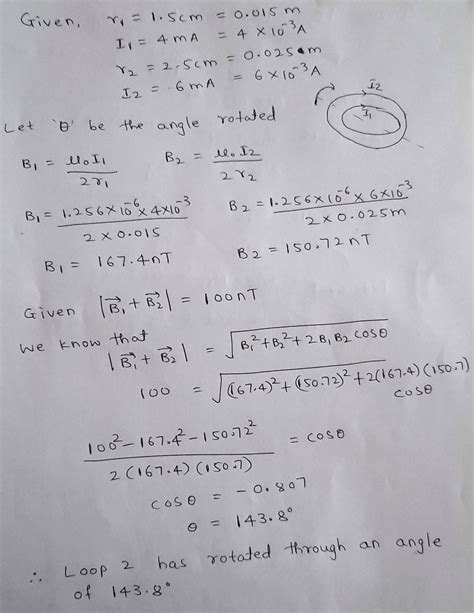 Given, r₁ = 1.5cm = 0.015 m
I₁ = 4 mA = 4 × 10⁻³A
r₂ = 2.5cm = 0.025m
I₂ = .6mA = 6 × 10⁻³A
I₂
I₁
Let 'θ' be the angle rotated
B₁ = μ₀I₁ / 2r₁   B₂ = μ₀I₂ / 2r₂
B₁ = 1.256×10⁻⁶×4×10⁻³ / 2 × 0.015   B₂ = 1.256×10⁻⁶×6×10⁻³ / 2×0.025m
B₁ = 167.4nT   B₂ = 150.72nT
Given |B⃗₁ + B⃗₂| = 100nT
We know that
|B⃗₁ + B⃗₂| = √(B₁²+B₂²+2B₁B₂ cosθ)
100 = √((167.4)²+(150.72)²+2(167.4)(150.7) cosθ)
100² − 167.4² − 150.72² / 2(167.4)(150.7) = cosθ
cosθ = −0.807
θ = 143.8°
∴ Loop 2 has rotated through an angle
of 143.8°